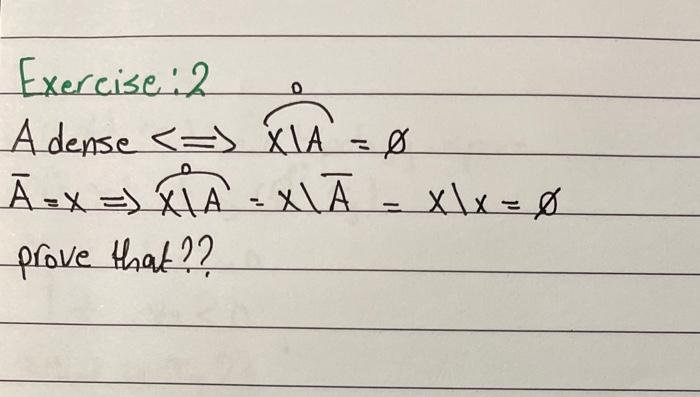 Exercise: 2
A dense <=> X\A° = ∅
Ā = X => X\A° = X\Ā = X\X = ∅
prove that??